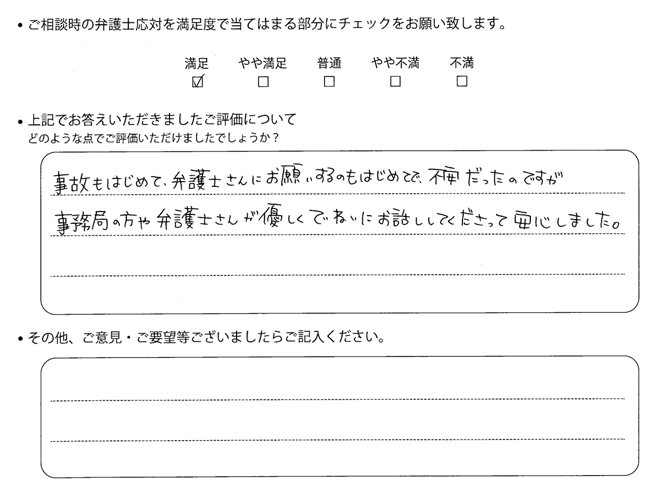 • ご相談時の弁護士応対を満足度で当てはまる部分にチェックをお願い致します。
満足 やや満足 普通 やや不満 不満
☑ ☐ ☐ ☐ ☐
• 上記でお答えいただきましたご評価について
どのような点でご評価いただけましたでしょうか？
事故もはじめて、弁護士さんにお願いするのもはじめてで、不安だったのですが
事務局の方や弁護士さんが優しくていねいにお話ししてくださって安心しました。
• その他、ご意見・ご要望等ございましたらご記入ください。